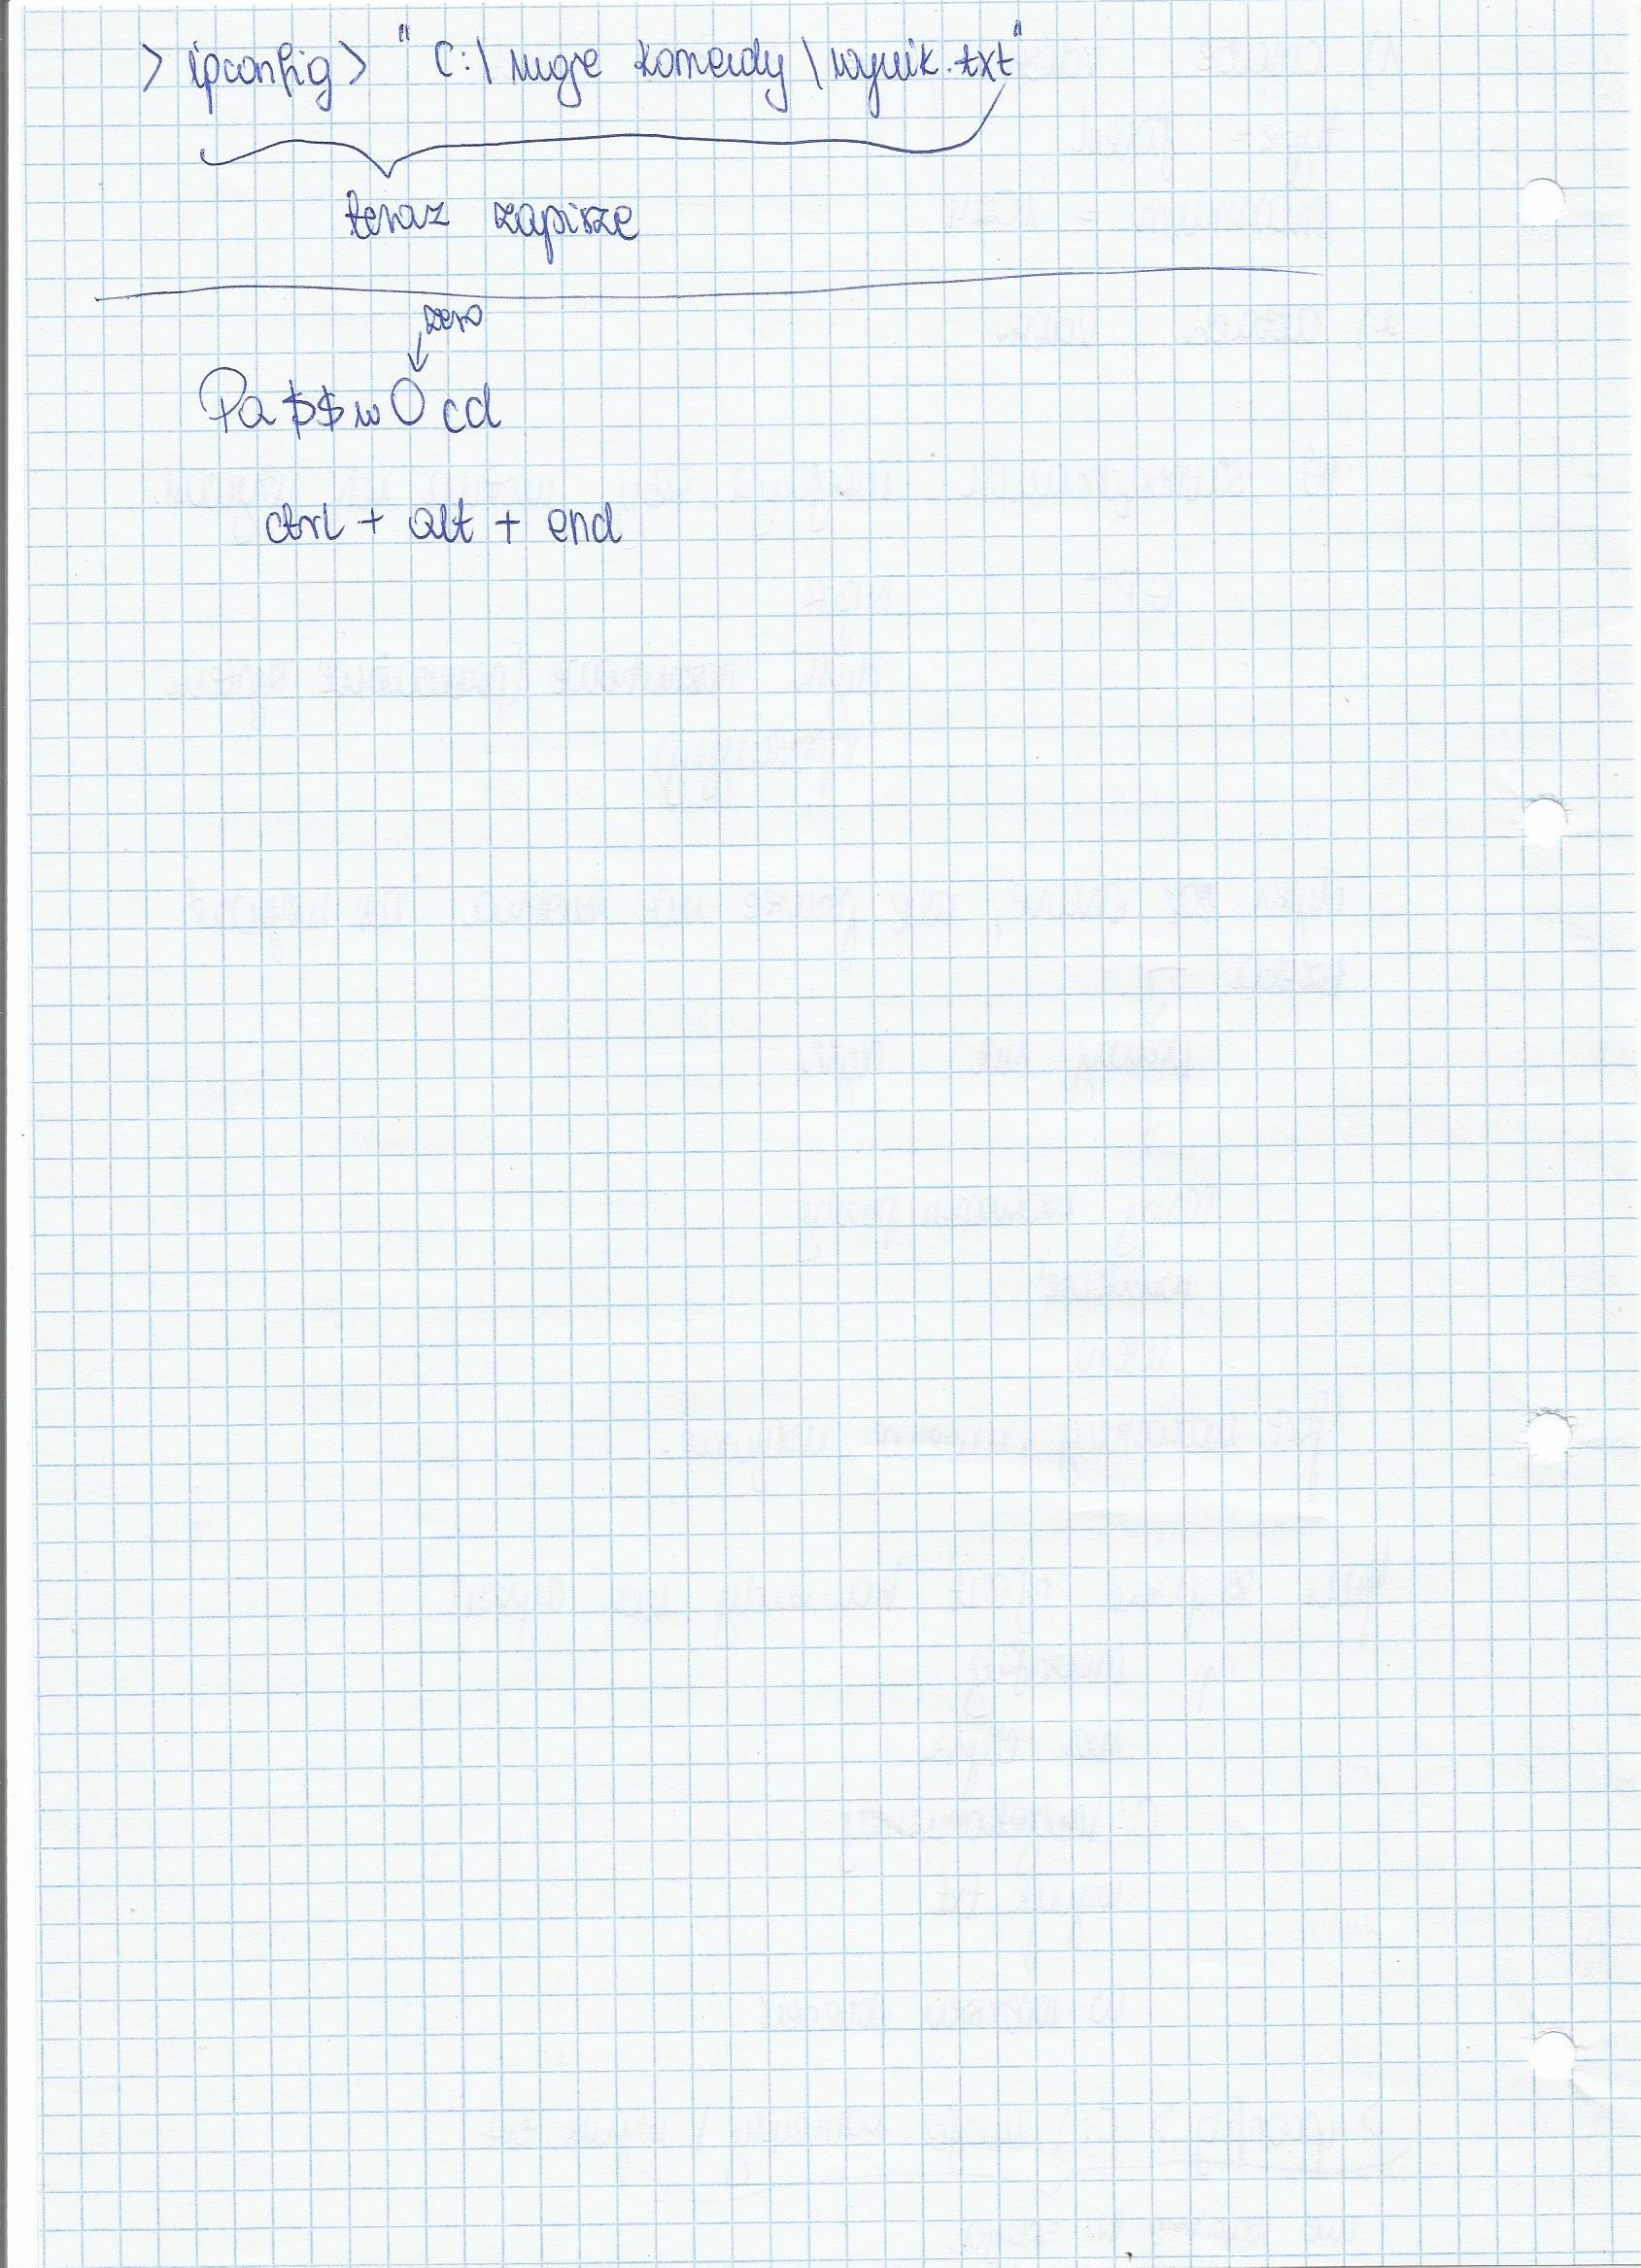 > ipconfig > "C:\moje komendy\wynik.txt"
teraz zapisze
zero
Pa$$w0rd
ctrl + alt + end